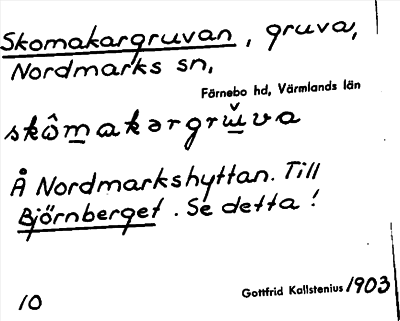 Skomakargruvan, gruva,
Nordmarks sn,
Färnebo hd, Värmlands län
skô̱makərgrŭ̱va
Å Nordmarkshyttan. Till
Björnberget. Se detta!
10
Gottfrid Kallstenius 1903